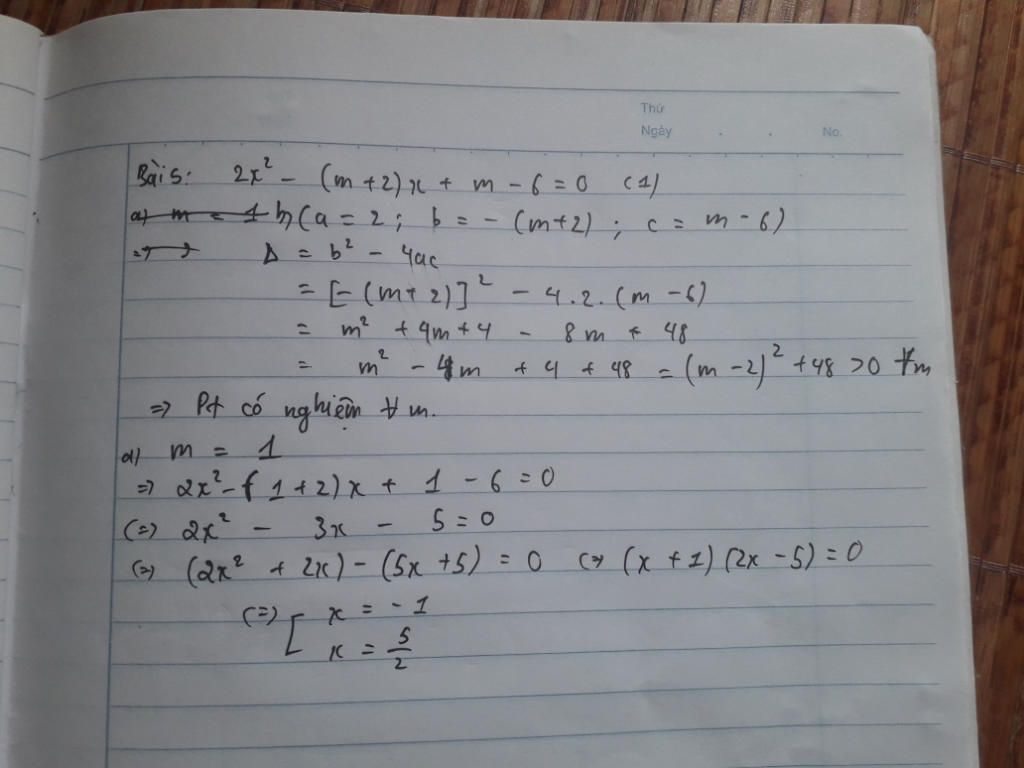 Thứ
Ngày . . No.
Bài 5: 2x² - (m+2)x + m - 6 = 0 (1)
a) m = 1 b) (a = 2; b = - (m+2); c = m - 6)
=>
Δ = b² - 4ac
= [- (m+2)]² - 4.2.(m - 6)
= m² + 4m + 4 - 8m + 48
= m² - 4m + 4 + 48 = (m - 2)² + 48 > 0 ∀m
=> Pt có nghiệm ∀ m.
a) m = 1
=> 2x² - (1+2)x + 1 - 6 = 0
(=) 2x² - 3x - 5 = 0
(=) (2x² + 2x) - (5x + 5) = 0 (=) (x + 1)(2x - 5) = 0
(=) [ x = -1
x = 5/2